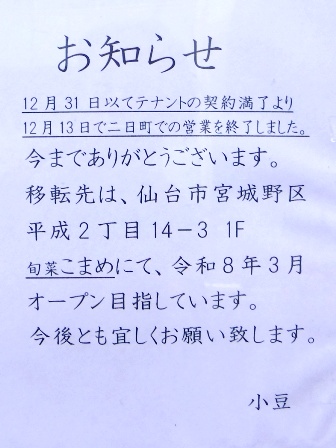 お知らせ
12月31日以てテナントの契約満了より
12月13日で二日町での営業を終了しました。
今までありがとうございます。
移転先は、仙台市宮城野区
平成2丁目14−3 1F
旬菜こまめにて、令和8年3月
オープン目指しています。
今後とも宜しくお願い致します。
小豆